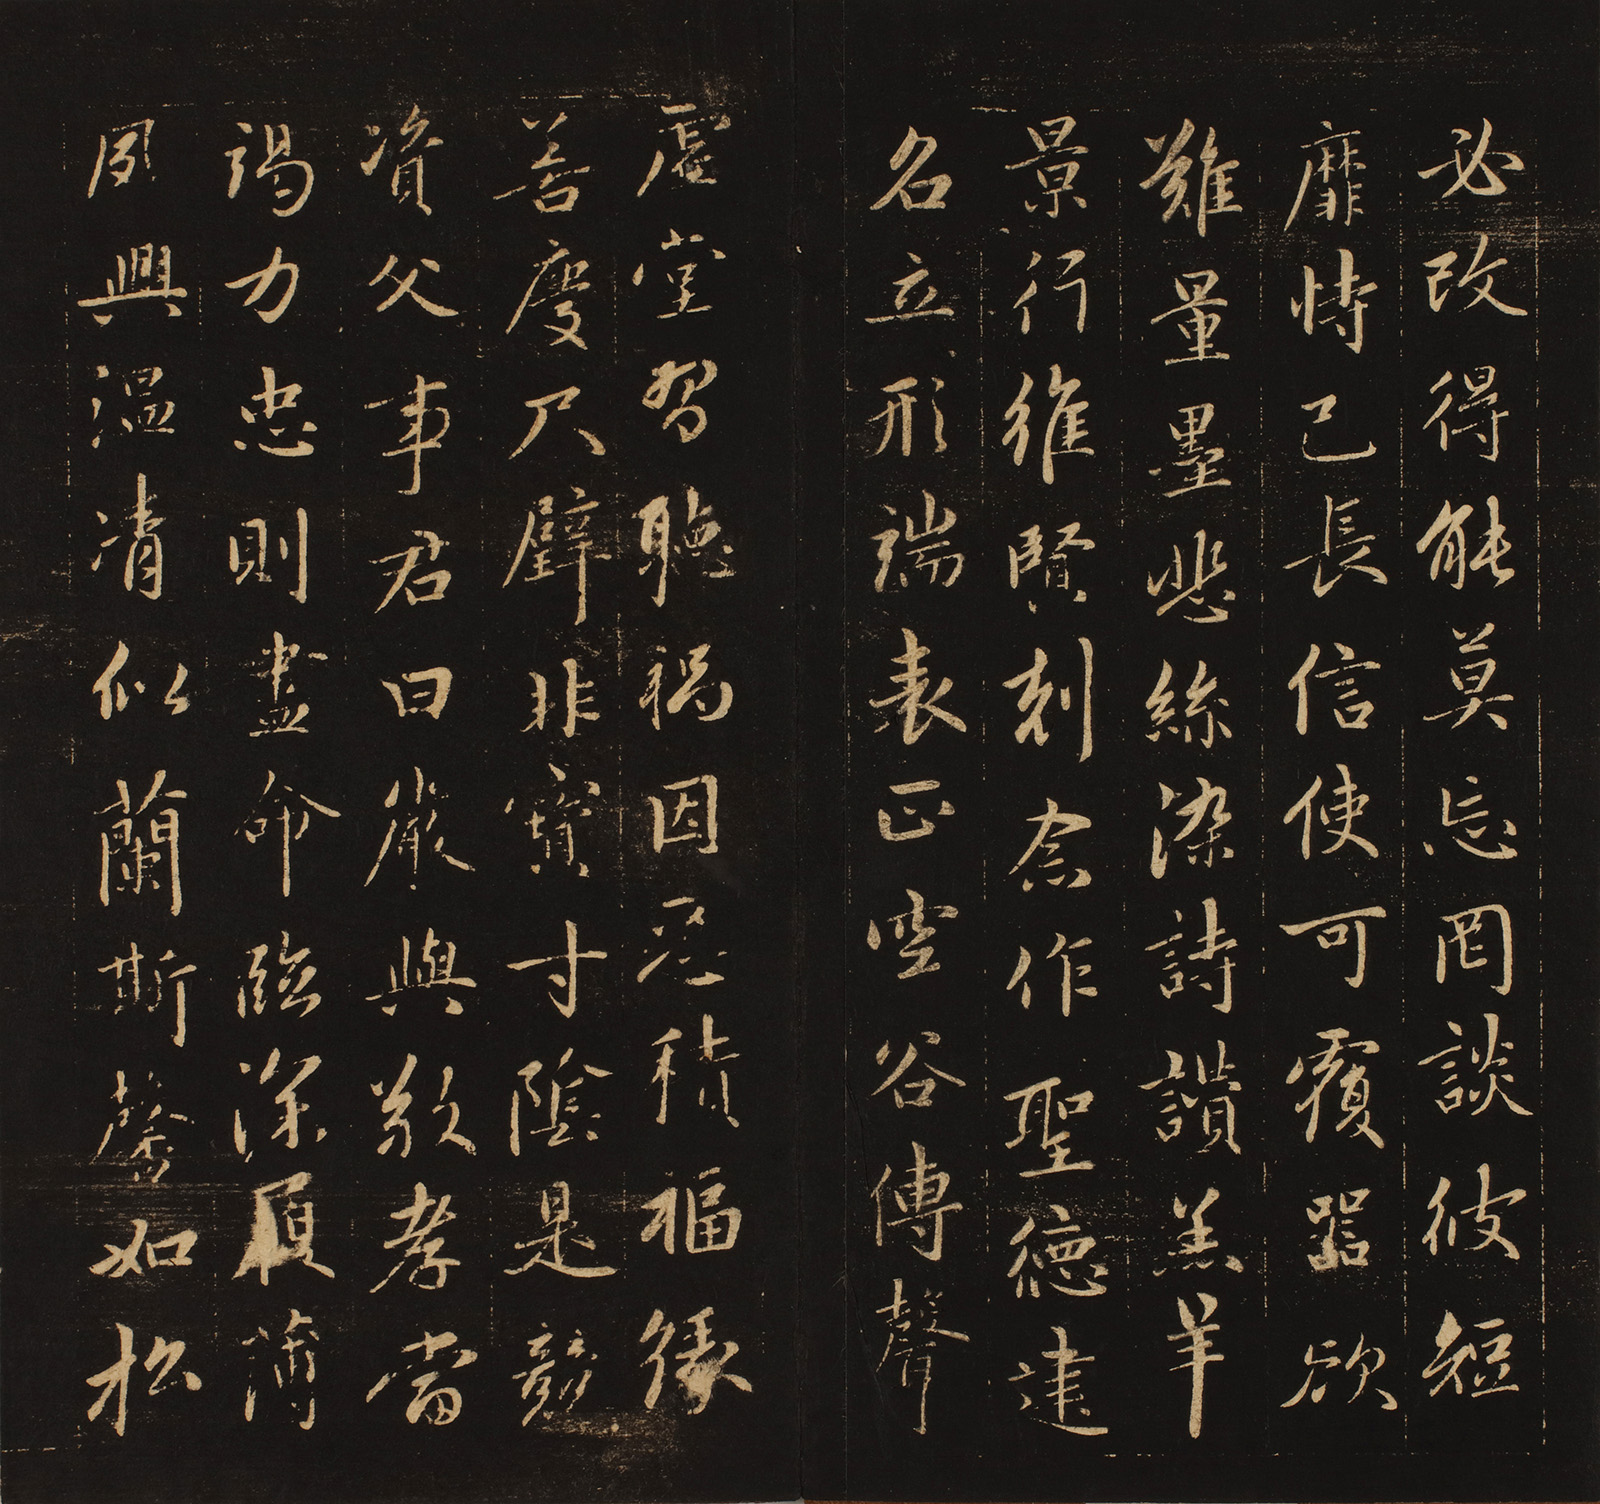 必改得能莫忘罔談彼短
靡恃己長信使可覆器欲
難量墨悲絲染詩讚羔羊
景行維賢剋念作聖德建
名立形端表正空谷傳聲
虛堂習聽禍因惡積福緣
善慶尺璧非寶寸陰是競
資父事君曰嚴與敬孝當
竭力忠則盡命臨深履薄
夙興溫凊似蘭斯馨如松